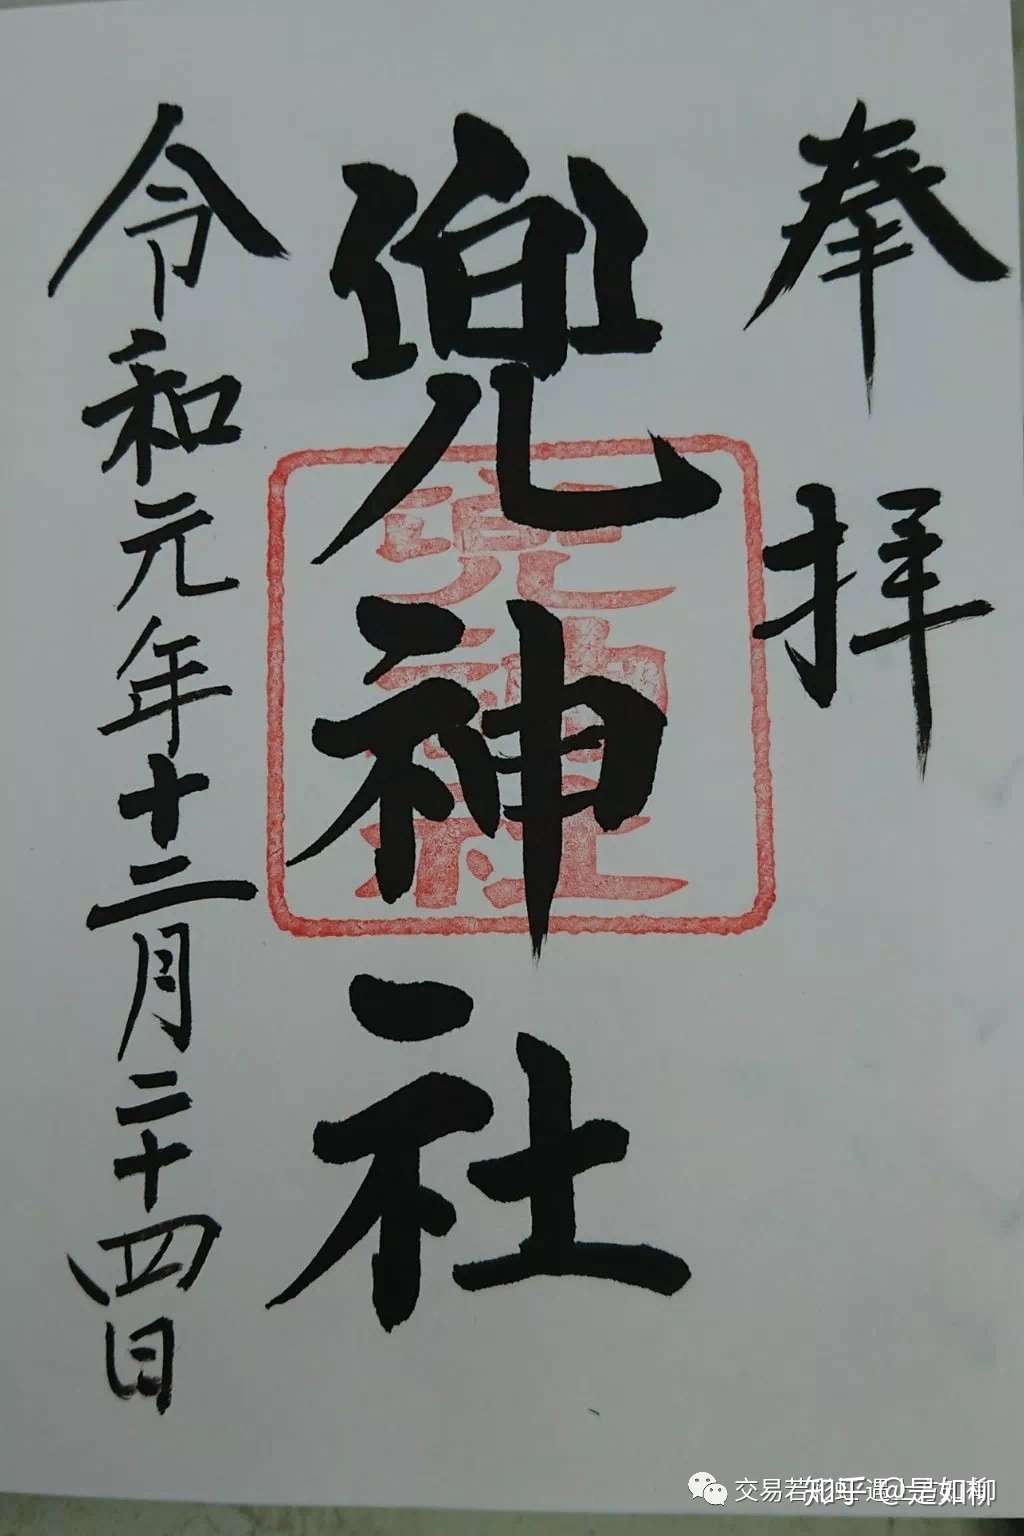 奉拝
兜神社
兜神社
令和元年十二月二十四日
知乎 @是如柳